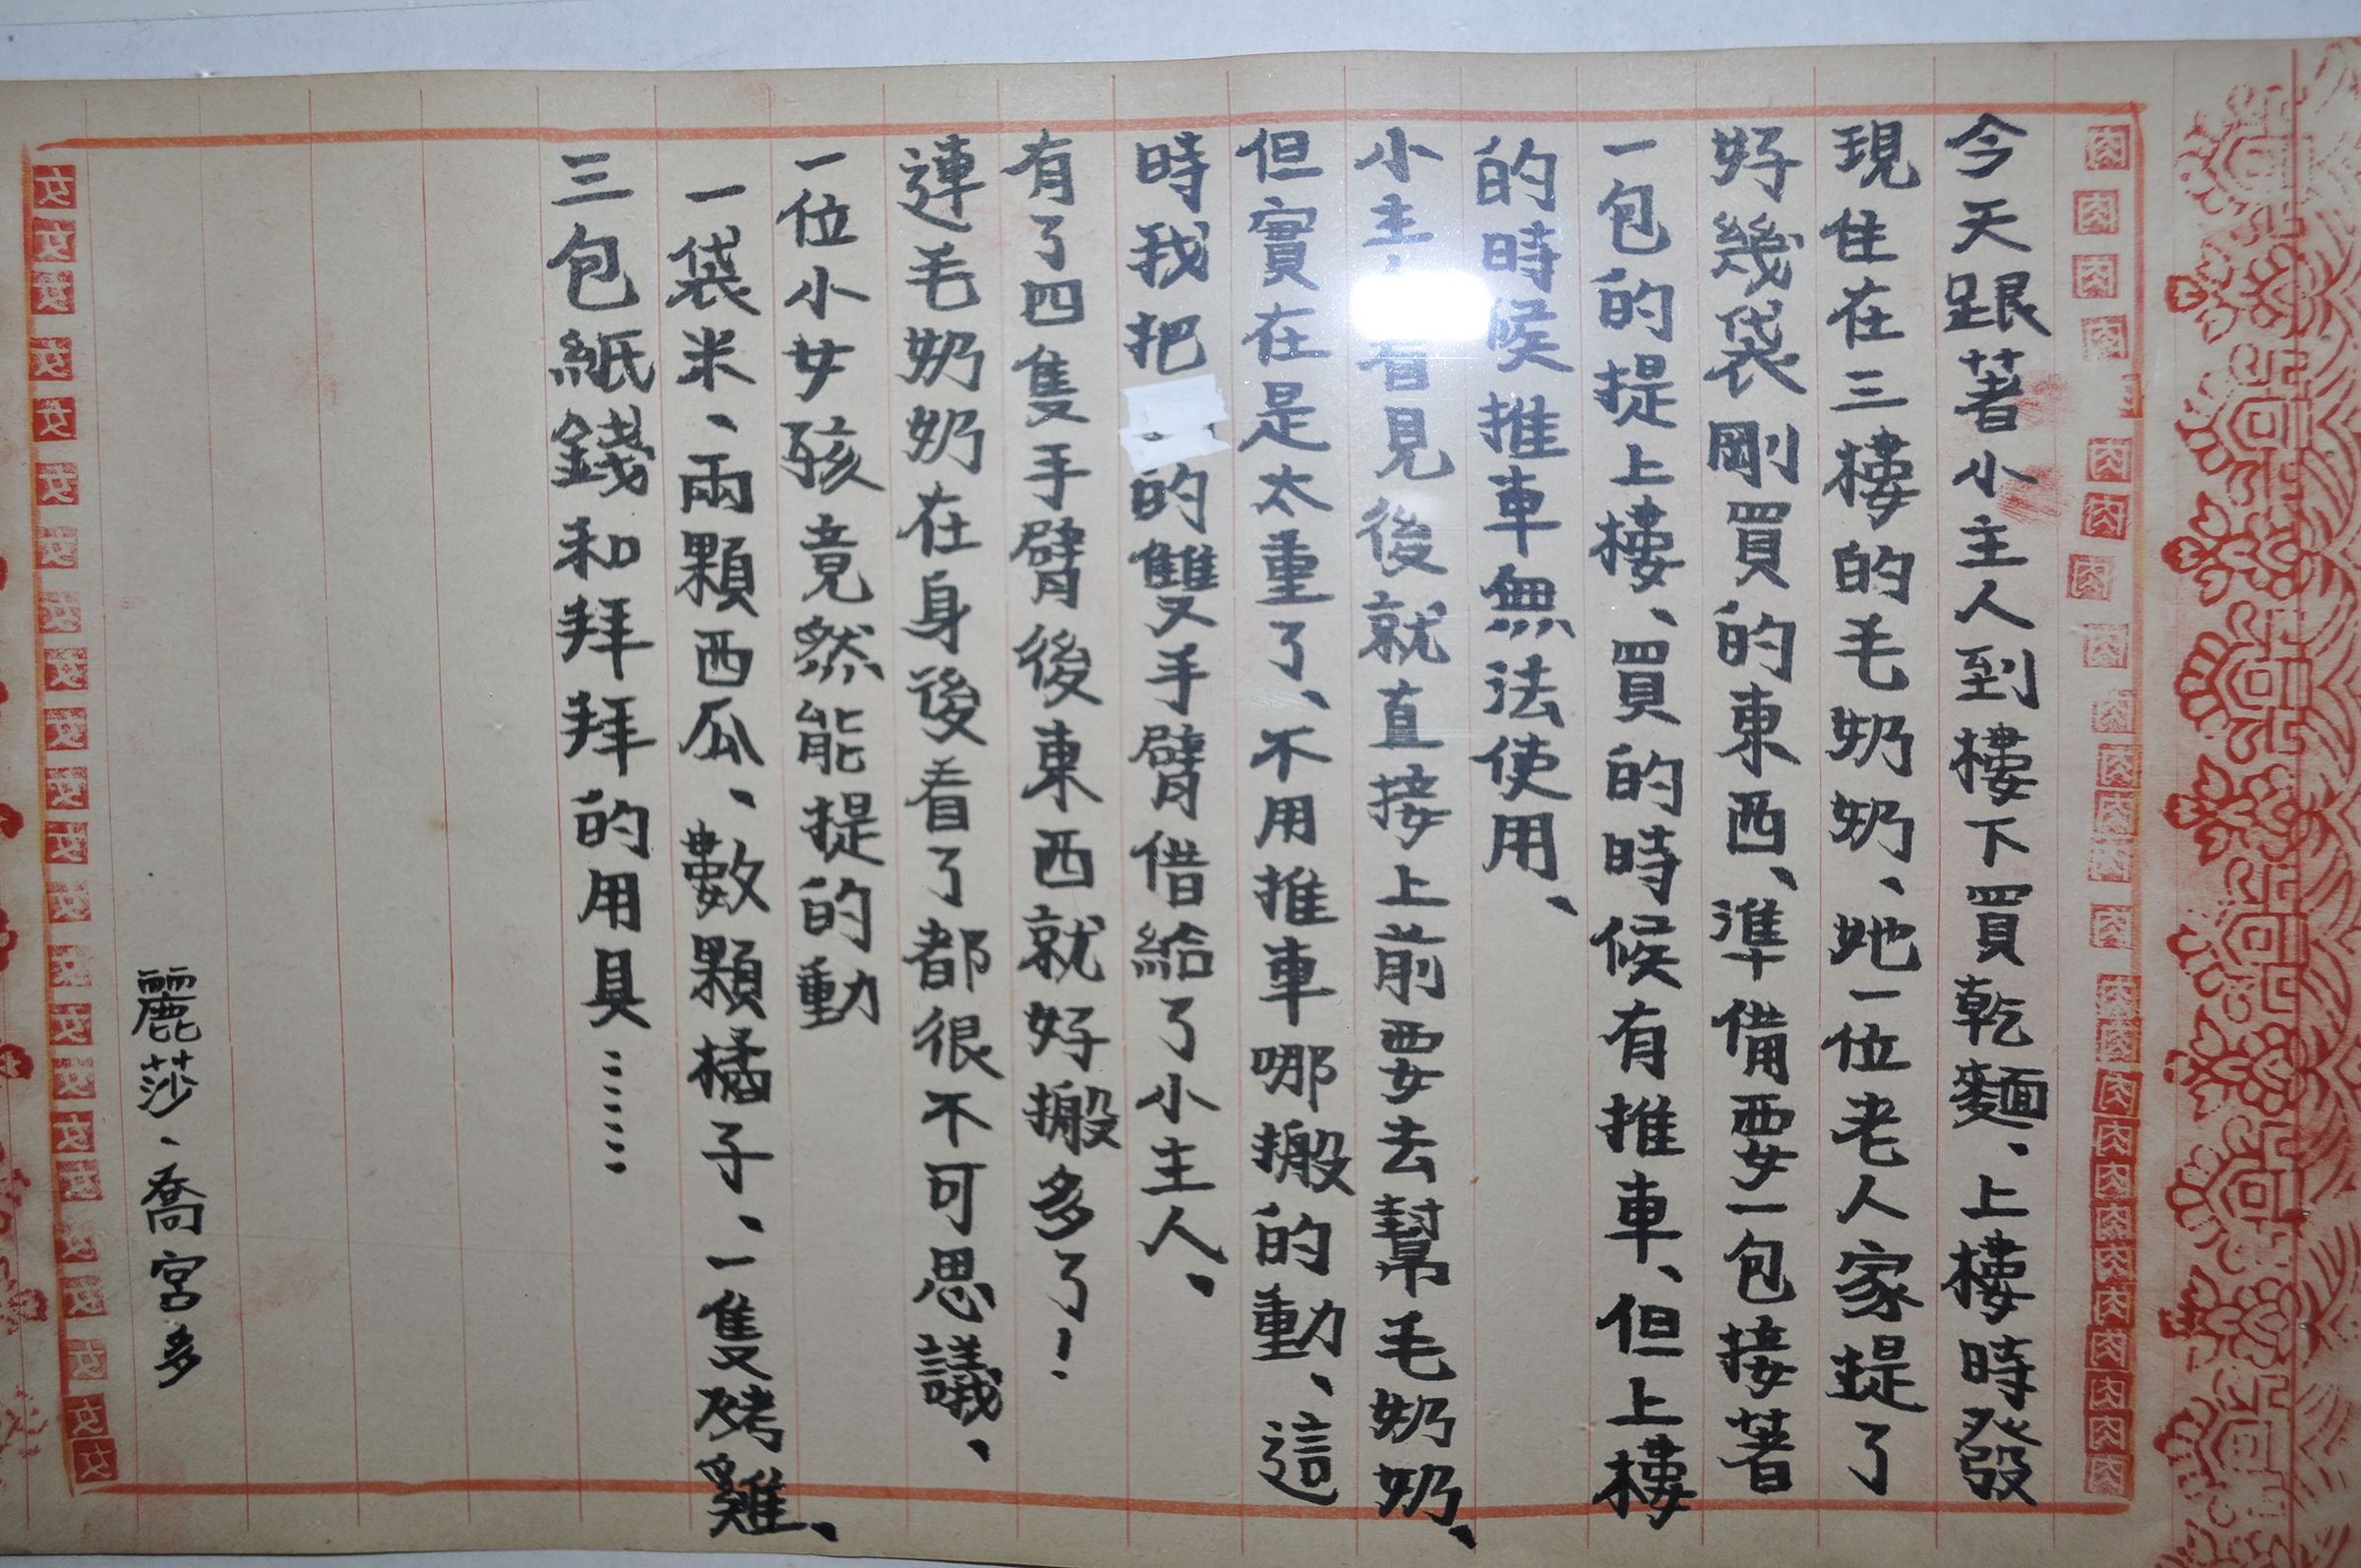 今天跟著小主人到樓下買乾麵、上樓時發
現住在三樓的毛奶奶、她一位老人家提了
好幾袋剛買的東西、準備要一包接著
一包的提上樓、買的時候有推車、但上樓
的時候推車無法使用、
小主看見後就直接上前要去幫毛奶奶、
但實在是太重了、不用推車哪搬的動、這
時我把的雙手臂借給了小主人、
有了四隻手臂後東西就好搬多了！
連毛奶奶在身後看了都很不可思議、
一位小女孩竟然能提的動
一袋米、兩顆西瓜、數顆橘子、一隻烤雞、
三包紙錢和拜拜的用具……
麗莎、喬宮多